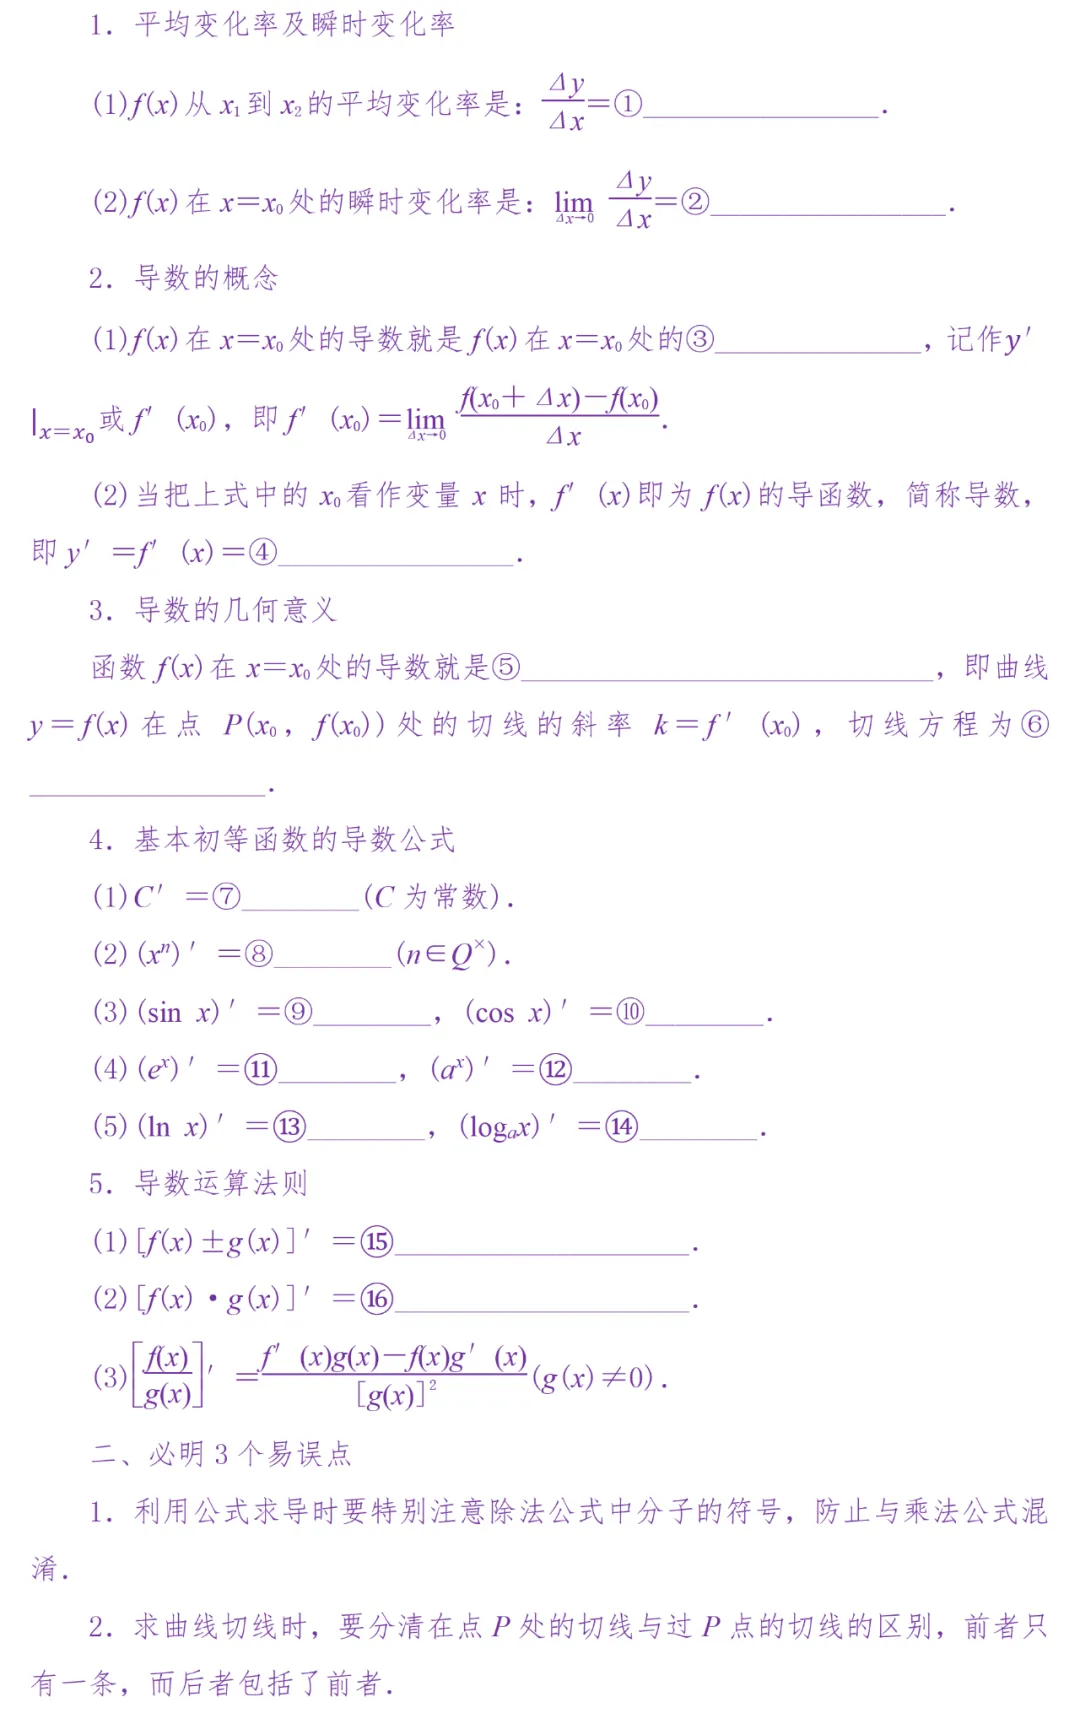 1．平均变化率及瞬时变化率
(1)f(x)从 x₁到 x₂的平均变化率是：Δy/Δx＝①________________．
(2)f(x)在 x＝x₀处的瞬时变化率是：lim Δx→0 Δy/Δx＝②________________．
2．导数的概念
(1)f(x)在 x＝x₀处的导数就是 f(x)在 x＝x₀处的③______________，记作y′
|x=x₀或 f′(x₀)，即 f′(x₀)＝lim Δx→0 f(x₀＋Δx)－f(x₀)/Δx．
(2)当把上式中的 x₀看作变量 x 时，f′(x)即为 f(x)的导函数，简称导数，
即 y′＝f′(x)＝④________________．
3．导数的几何意义
函数 f(x)在 x＝x₀处的导数就是⑤____________________________，即曲线
y＝f(x)在点 P(x₀，f(x₀))处的切线的斜率 k＝f′(x₀)，切线方程为⑥
________________．
4．基本初等函数的导数公式
(1)C′＝⑦________(C 为常数)．
(2)(xⁿ)′＝⑧________(n∈Q×)．
(3)(sin x)′＝⑨________，(cos x)′＝⑩________．
(4)(eˣ)′＝⑪________，(aˣ)′＝⑫________．
(5)(ln x)′＝⑬________，(logₐx)′＝⑭________．
5．导数运算法则
(1)[f(x)±g(x)]′＝⑮____________________．
(2)[f(x)·g(x)]′＝⑯____________________．
(3)[f(x)/g(x)]′＝f′(x)g(x)－f(x)g′(x)/[g(x)]²(g(x)≠0)．
二、必明 3 个易误点
1．利用公式求导时要特别注意除法公式中分子的符号，防止与乘法公式混
淆．
2．求曲线切线时，要分清在点 P 处的切线与过 P 点的切线的区别，前者只
有一条，而后者包括了前者．